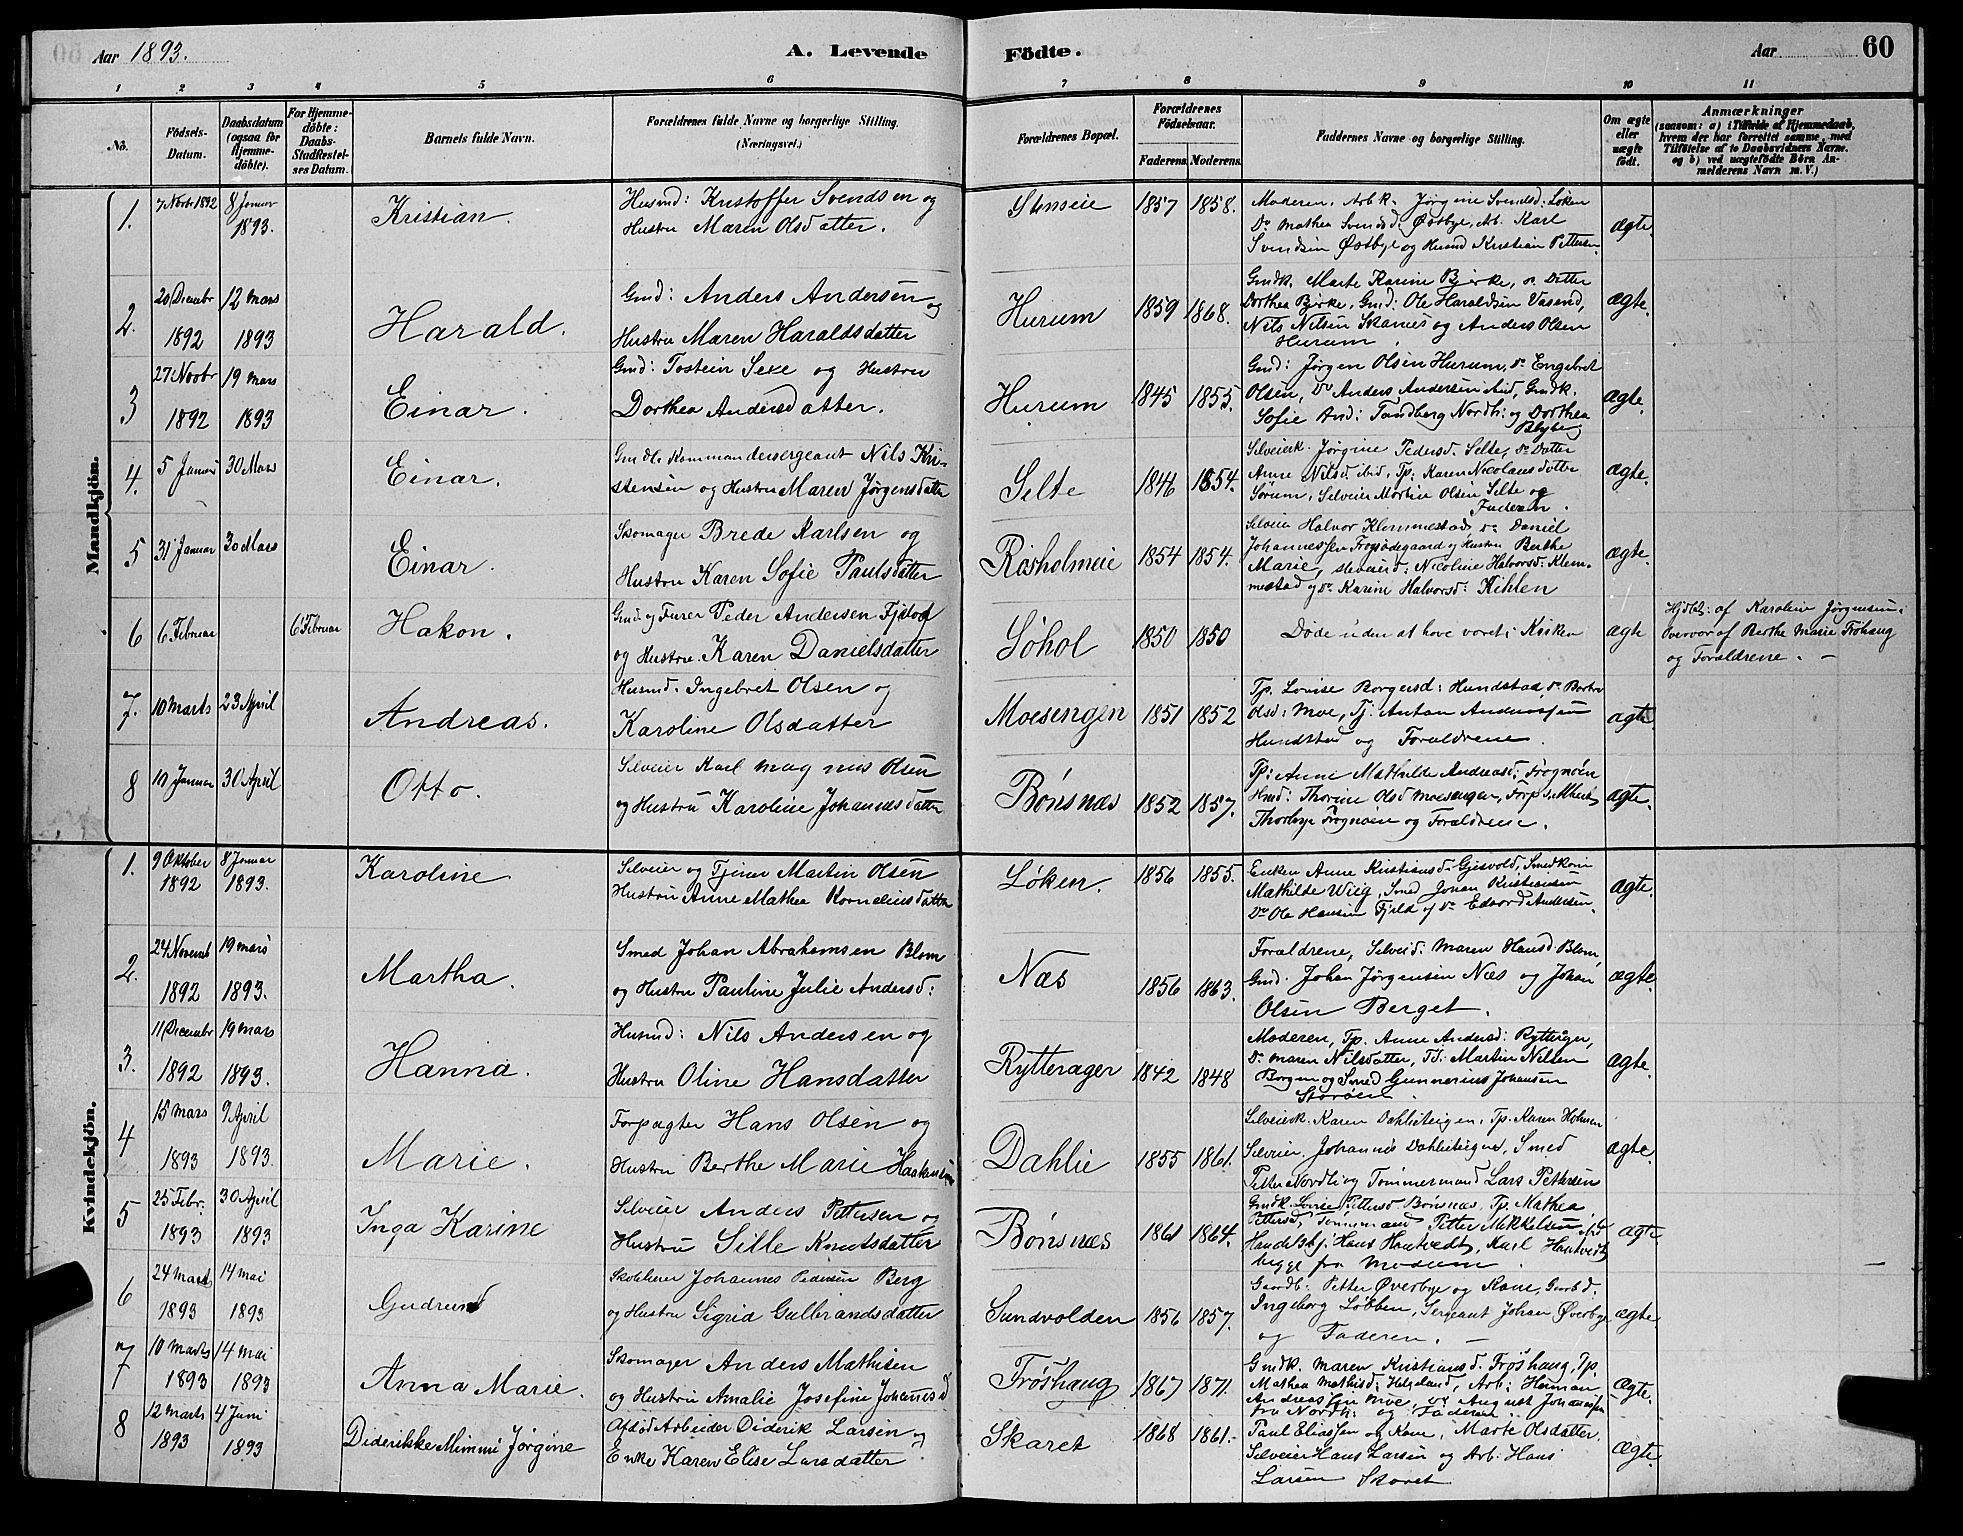 Aar 1893.
A. Levende
Födte.
Aar
60
1 2 3 4 5 6 7 8 9 10 11
No.
Födsels-
Datum.
Daabsdatum
(ogsaa for
Hjemme-
döbte).
For Hjemme-
döbte:
Daabs-
Stadfæstel-
ses Datum.
Barnets fulde Navn.
Forældrenes fulde Navne og borgerlige Stilling.
(Næringsvei.)
Forældrenes Bopæl.
Forældrenes
Födselsaar.
Faderens. Moderens.
Faddernes Navne og borgerlige Stilling.
Om ægte
eller
uægte
födt.
Anmærkninger
(saasom: a) i Tilfælde af Hjemmedaab,
hvem der har forrettet samme, med
Tilföielse af to Daabsvidners Navne.
og b) ved uægtefödte Börn An-
melderens Navn m. V.)
Mandkjön.
1. 7 Novbr 1892 8 Januar 1893. Kristian.
Husmd: Kristoffer Svendsen og
Hustru Maren Olsdatter.
Steneie 1857 1858.
Moderen, Arbk. Jørgine Svendsd: Løken
Do Mathea Svendsd. Østbye, Arb. Karl
Svendsen Østbye og Husmd Kristian Pettersen
ægte.
2. 20 Decembr 1892 12 Mars 1893 Harald.
Gmd: Anders Andersen og
Hustru Maren Haraldsdatter
Hurum 1859 1868.
Gmdk. Marte Karine Birke, o. Datter
Dorthea Birke, Gmd: Ole Haraldsen Vasend,
Nils Nilsen Skanæs og Anders Olsen
Hurum.
ægte.
3 27 Novbr 1892 19 Mars 1893 Einar.
Gmd: Tostein Sexe og Hustru
Dorthea Andersdatter.
Hurum 1845 1855.
Gmd: Jørgen Olsen Hurum, do Engebret
Olsen, Do Anders Andersen ibid, Gmdk.
Sofie And: Tandberg Nordh: og Dorthea
Blyberg
ægte.
4. 5 Januar 30 Mars Einar.
Gmd og Kommandersergeant Nils Kri-
stensen og Hustru Maren Jørgensdatter
Selte 1846 1854.
Selveierk. Jørgine Pedersd. Selte, do Datter
Anne Nilsd. ibid, Tp. Karen Nicolausdatter
Sørum, Selveier Martin Olsen Selte og
Faderen.
ægte.
5 31 Januar 30 Mars Einar.
Skomager Brede Karlsen og
Hustru Karen Sofie Paulsdatter
Røsholmeie 1854 1854.
Selveier Halvor Klemmestad, do Daniel
Johannessen Frogødegaard og Hustru Berthe
Marie, Nicoline Halvorsd: Klem-
mestad og do Karine Halvorsd: Kihlen
ægte.
6 6 Februar 6 Februar Hakon.
Gmd og Furer Peder Andersen Fjeld
og Hustru Karen Danielsdatter
Søhol 1850 1850
Døde uden at have været i Kirken
ægte
Hjdbt: af Karoline Jørgensen.
Overvær af Berthe Marie Frøhaug
og Forældrene. —
7. 10 Marts 23 April Andreas.
Husmd. Ingebret Olsen og
Karoline Olsdatter
Moesengen 1851 1852
Tp. Lovise Borgersd: Hundstad, do Barbro
Olsd: Moe, Tj: Anton Anderssen
Hundstad og Forældrene.
ægte
8 10 Januar 30 April Otto.
Selveier Karl Magnus Olsen
og Hustru Karoline Johannesdatter
Bønsnæs 1852 1857.
Tp: Anne Mathilde Andreasd: Frognøen
Hmd: Thorine Olsd Moesengen, Forp.
Thorbye Frognøen og Forældrene.
ægte.
Kvindekjön.
1. 9 Oktober 1892 8 Januar 1893. Karoline
Selveier og Tjener Martin Olsen
Hustru Anne Mathea Korneliusdatter
Løken. 1856 1855.
Enken Anne Kristiansd. Gjesvold, Smedkone
Mathilde Wiig, Smed Johan Kristiansen
Do Ole Hansen Fjeld og do Edvard Andersen.
ægte.
2. 24 Novemb 1892 19 Mars 1893. Martha.
Smed Johan Abrahamsen Blom
og Hustru Pauline Julie Andersd:
Næs 1856 1863.
Forældrene, Selveid: Maren Hansd. Blom,
Gmd. Johan Jørgensen Næs og Johan
Olsen Berget.
ægte.
3. 11 Decembr 1892 19 Mars 1893. Hanna.
Husmd: Nils Andersen og
Hustru Oline Hansdatter
Rytterager 1842 1848
Moderen, Tp. Anne Andersd: Rytterager,
Do Maren Nilsdatter, Tj: Martin Nilsen
Borgen og Smed Gunnerius Johansen
Storøen.
ægte.
4 15 Mars 1893 9 April 1893. Marie.
Forpagter Hans Olsen og
Hustru Berthe Marie Haakensen
Dahlie 1855 1861.
Selveierk. Karen Dahlieteigen, Tp. Karen Holmen
Selveier Johannes Dahlieteigen, Smed
Petter Nordli og Tømmermand Lars Pettersen
ægte.
5 25 Febr. 1893 30 April 1893 Inga Karine
Selveier Anders Pettersen og
Hustru Sille Knutsdatter
Bønsnæs 1861 1864.
Gmdk. Lovise Pettersd Bønsnæs, Tp. Mathea
Pettersd, Tømmermand Petter Mikkelsen ibid
Handelsbj. Hans Hautvedt, Karl Hautvedt
begge fra Modum.
ægte.
6 24 Marts 1893 14 Mai 1893 Gudrund
Skolelærer Johannes Pedersen Berg
og Hustru Sigrid Gulbrandsdatter
Sundvolden 1856 1857.
Gaardb: Petter Øverbye og Kone, Gaardbd.
Ingeborg Løbben, Sergeant Johan Øverbye
og Faderen. —
ægte.
7 10 Marts 1893 14 Mai 1893 Anna Marie.
Skomager Anders Mathisen
og Hustru Amalie Josefine Johansd
Frøshaug 1867 1871.
Gmdk. Maren Kristiansd. Frøshaug, Tp.
Mathea Mathisd: Helgeland, Arb: Herman
Andreassen Moe, do August Johannessen
fra Nordh: og Faderen.
Ægte.
8 12 Marts 1893 4 Juni 1893. Diderikke Mimmi Jørgine
Afdød Arbeider Diderik Larsen og
Enke Karen Elise Larsdatter
Skaret 1868 1861.
Paul Eliassen og Kone, Marte Olsdatter.
Selveier Hans Larsen og Arb. Hans
Larsen Skaret
Ægte.